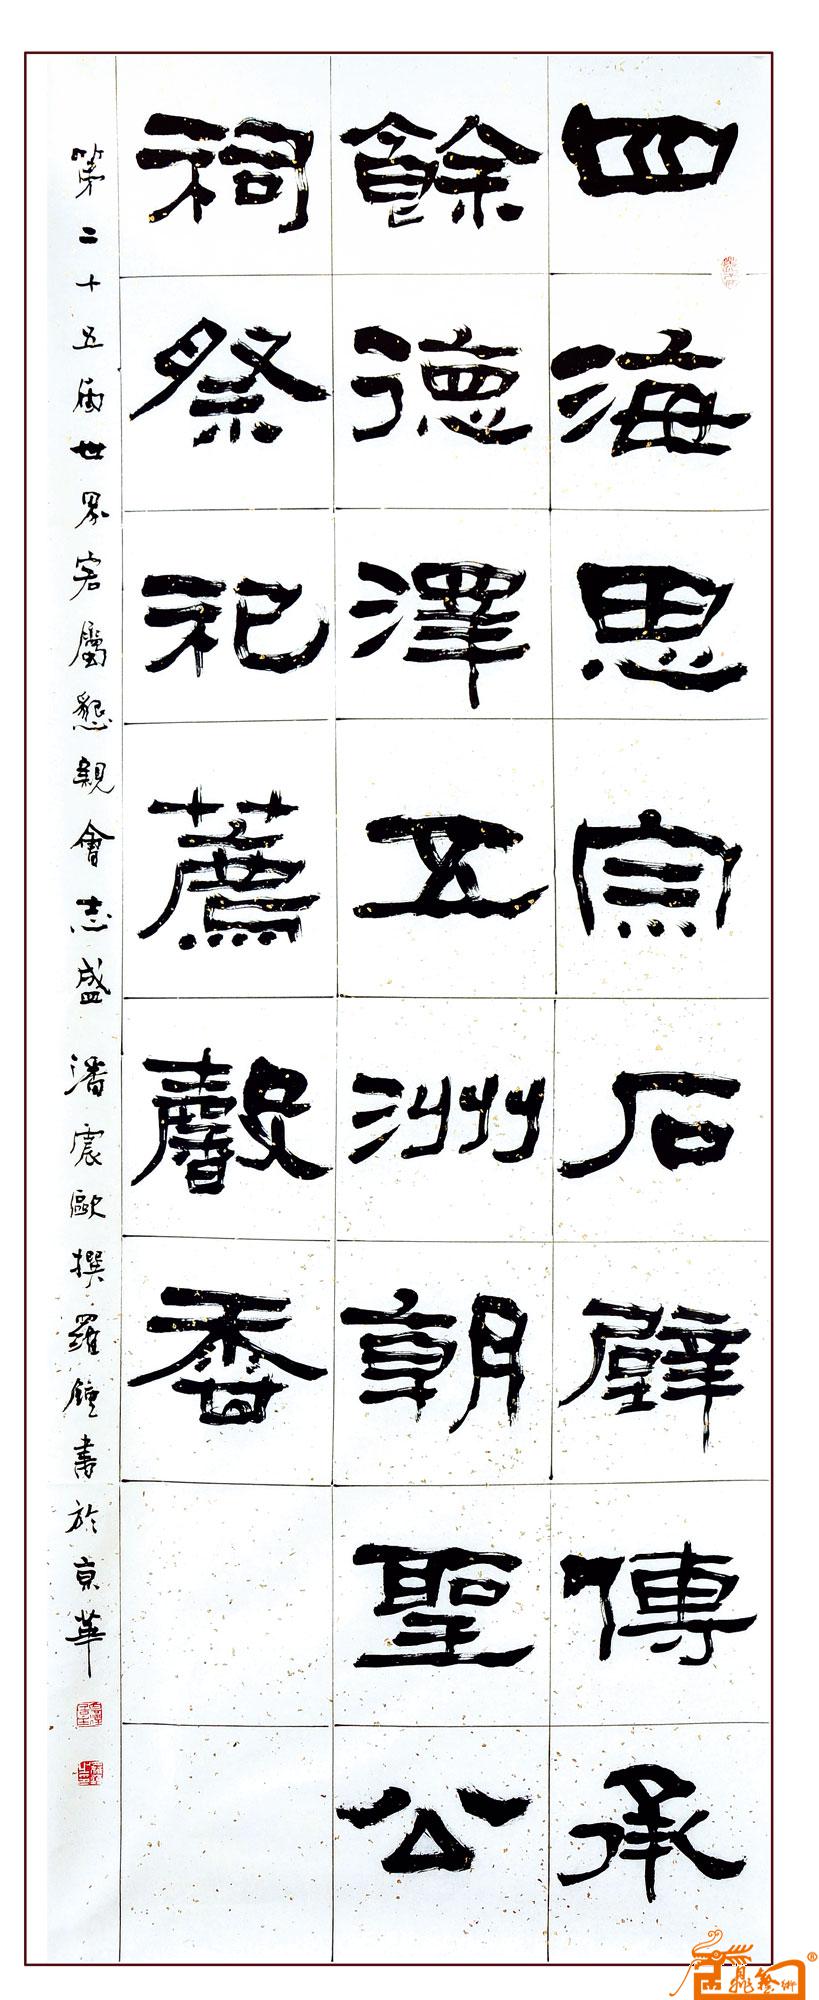 四海思宗石壁傳承
餘德澤五洲朝聖公
祠祭祀薦馨香
第二十五届世界客屬懇親會志盛 潘震歐撰羅鍾書於京華